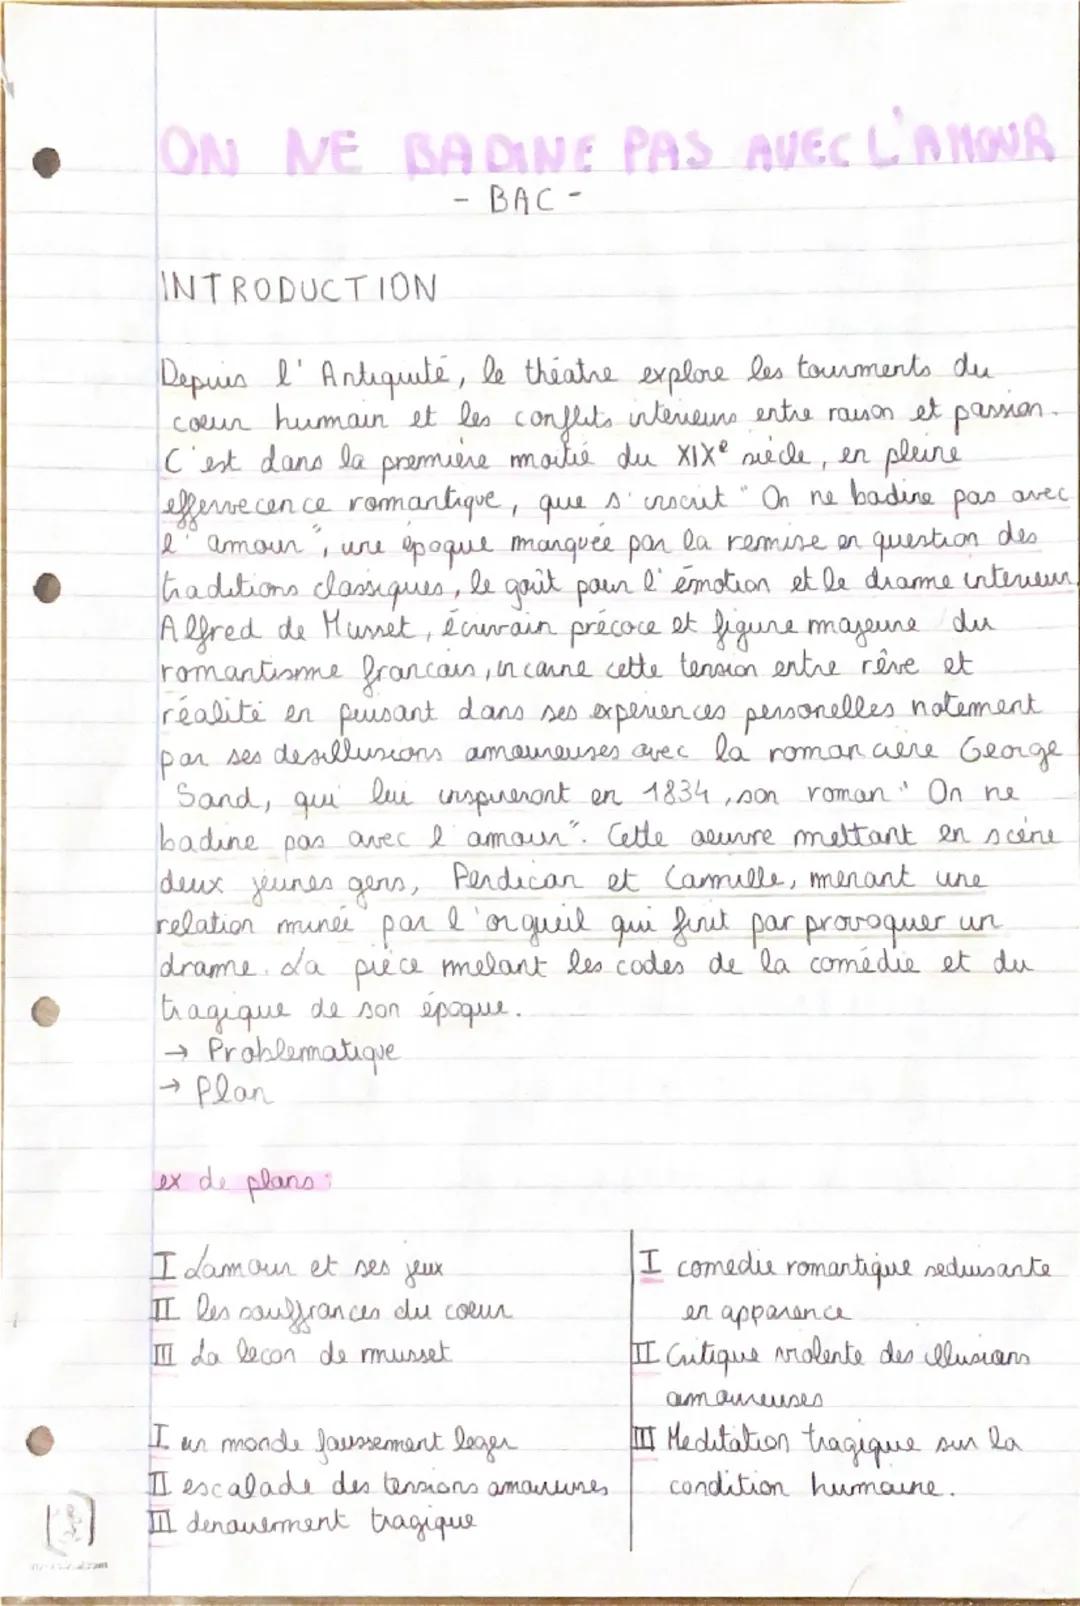 ON NE BADINE PAS AVEC L'AMOUR
- BAC -
INTRODUCTION
Depuis l'Antiquité, le théatre explore les tourments du
coeur humain et les conflits interieurs entre raison et passion.
C'est dans la première moitié du XIXe siècle, en pleine
effervecence romantique, que s'inscrit "On ne badine pas avec
l'amour", une époque marquée par la remise en question des
traditions classiques, le goût pour l'émotion et le drame interieur.
Alfred de Musset, écrivain précoce et figure majeure du
romantisme francais, incarne cette tension entre rêve et
réalité en puisant dans ses experiences personelles notement
par ses desillusions amoureuses avec la romancière George
Sand, qui lui inspireront en 1834, son roman "On ne
badine pas avec l'amour". Cette oeuvre mettant en scène
deux jeunes gens, Perdican et Camille, menant une
relation minée par l'orgueil qui finit par provoquer un
drame. La pièce melant les codes de la comédie et du
tragique de son époque.
→ Problematique
→ Plan
ex de plans :
I L'amour et ses jeux
II les souffrances du coeur
III La lecon de musset
I un monde faussement leger
II escalade des tensions amoureuses
III denouement tragique
I comedie romantique seduisante
en apparence
II Critique violente des illusions
amoureuses
III Meditation tragique sur la
condition humaine.